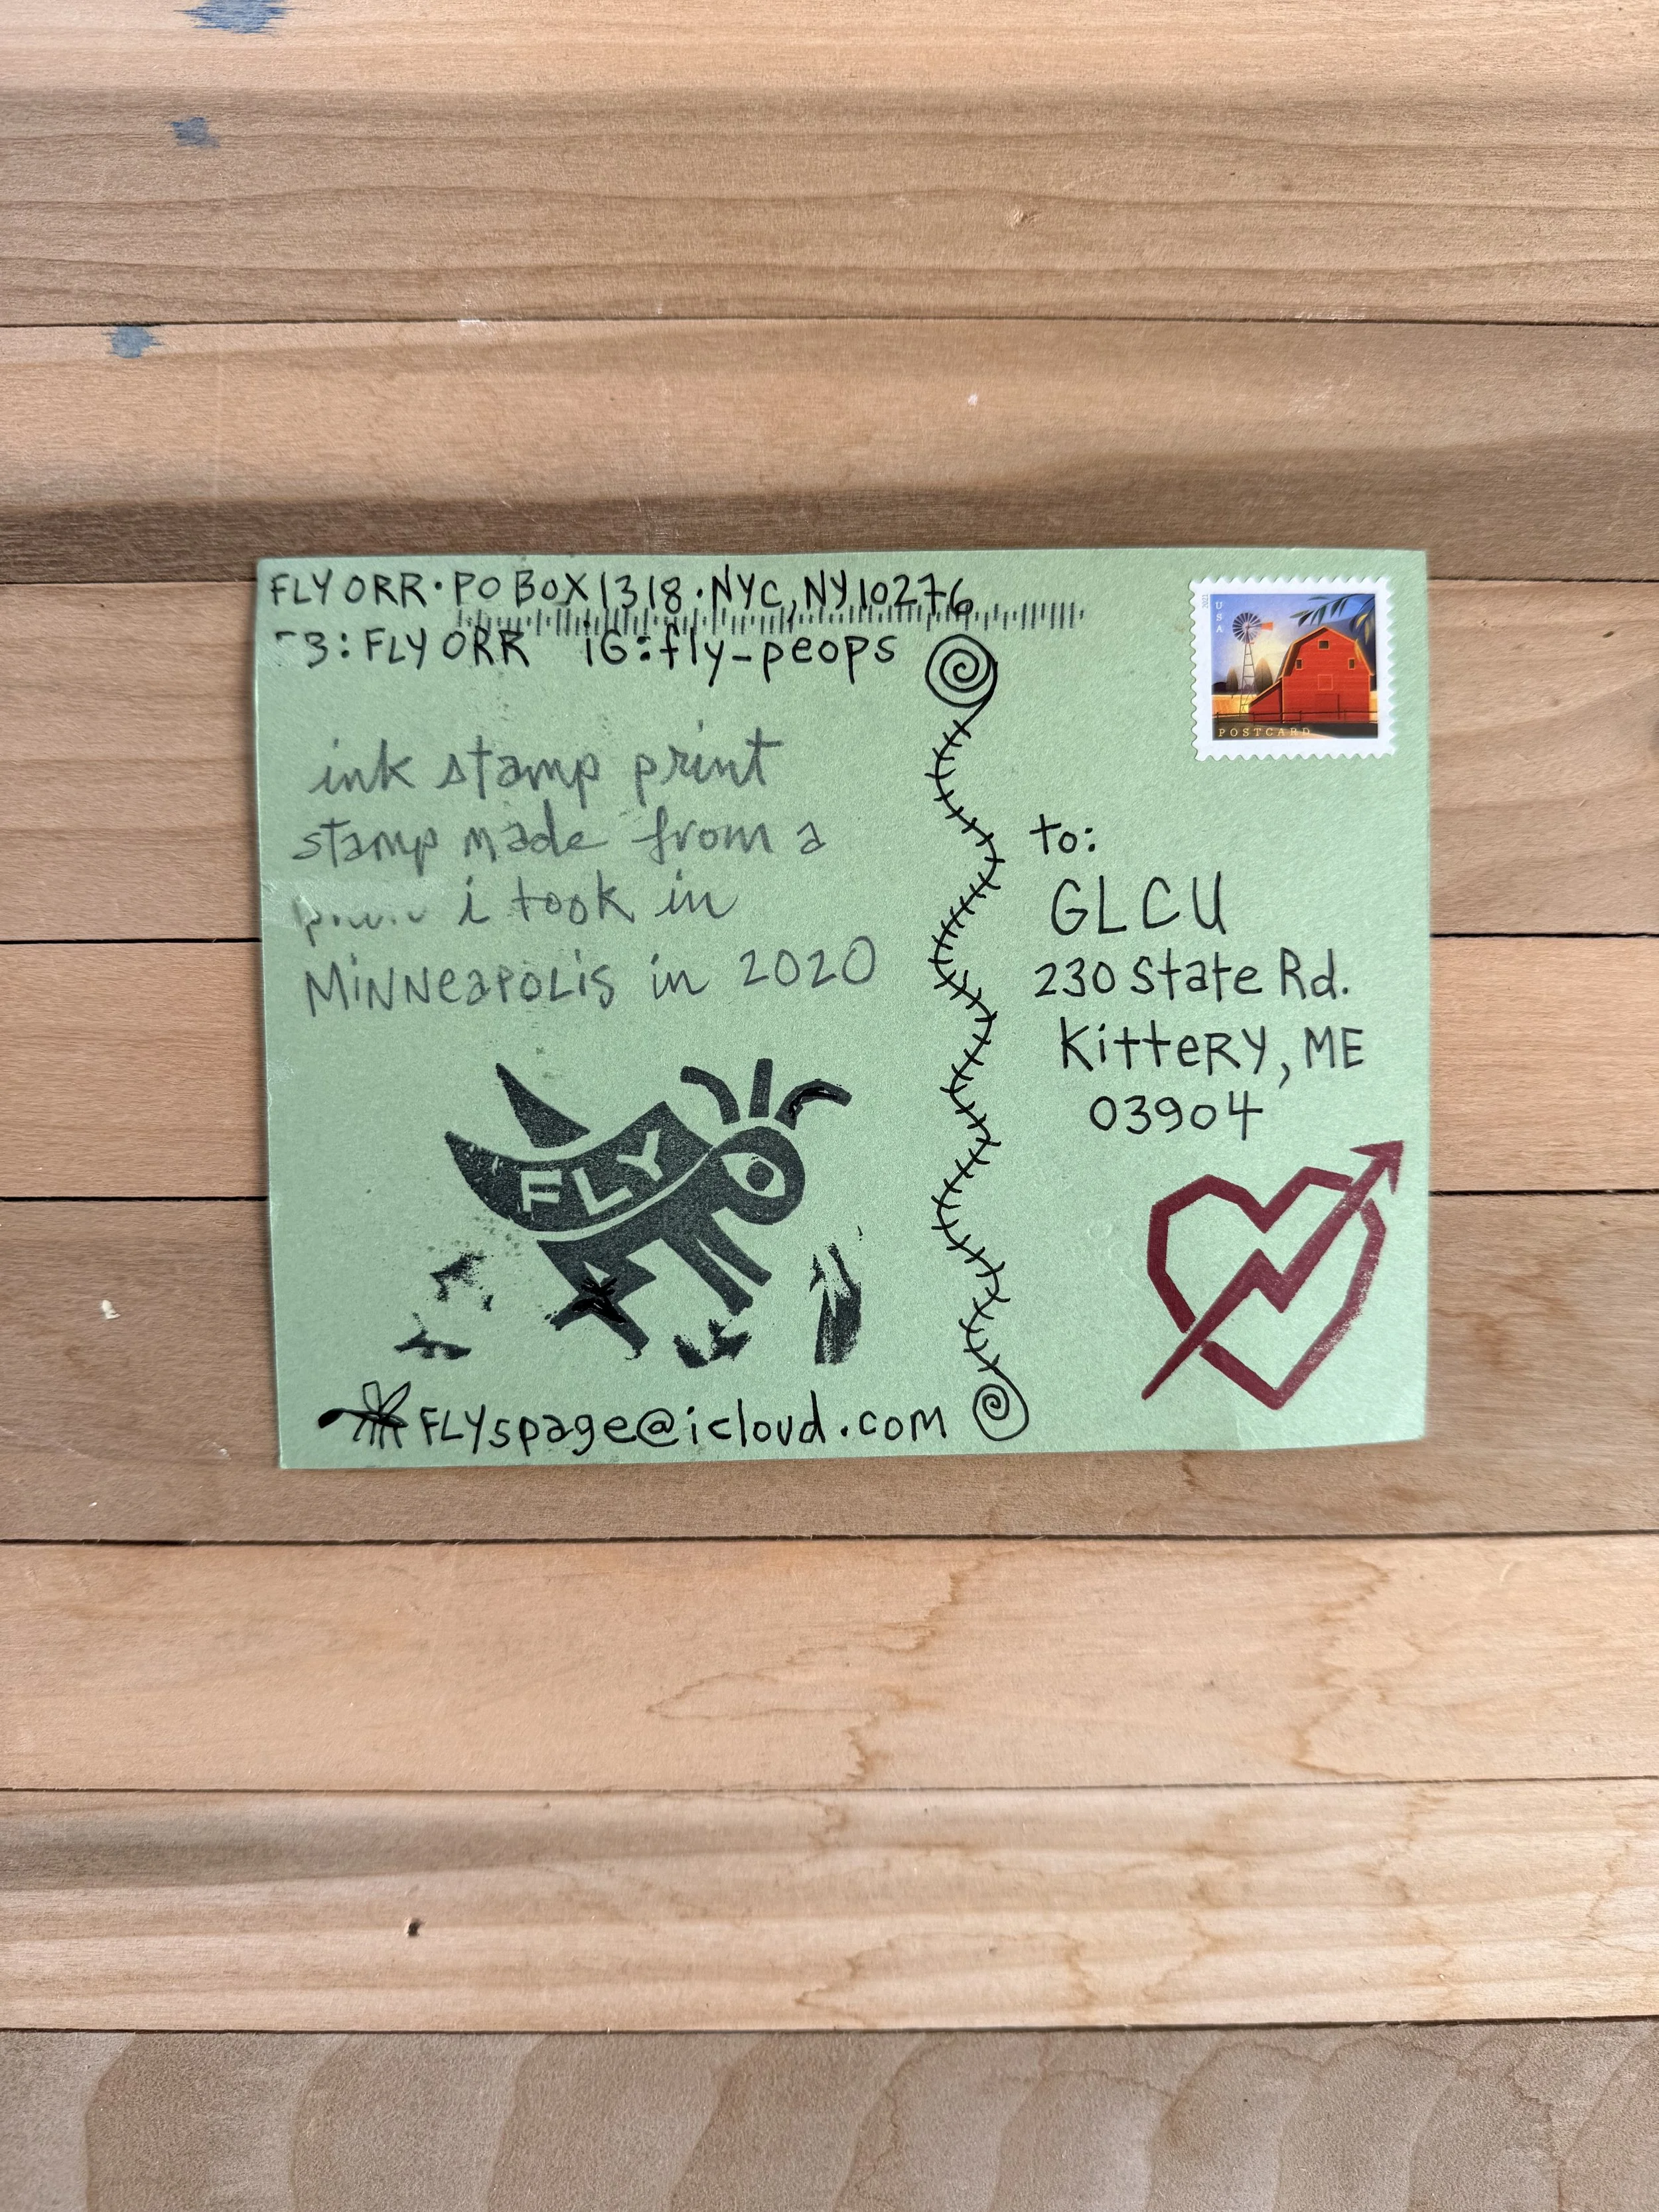 FLY ORR · PO BOX 1318 · NYC, NY 10276
FLY ORR IG: fly_peops
ink stamp print
stamp made from a
i took in
MiNNeapOLiS in 2020
FLY
FLYspage@icloud.com
USA
POSTCARD
to:
GLCU
230 State Rd.
KitteRY, ME
03904